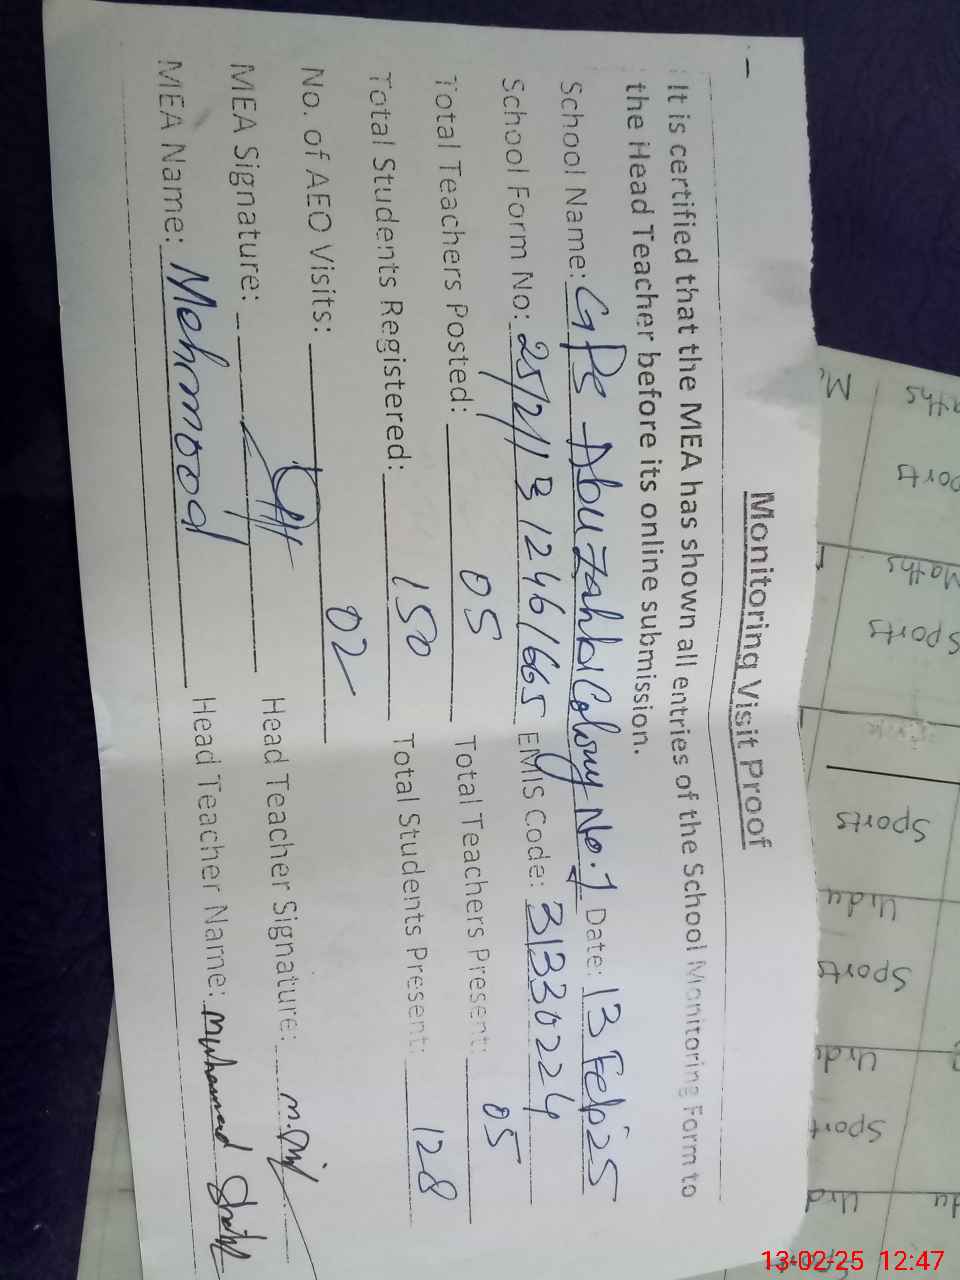 Monitoring Visit Proof
It is certified that the MEA has shown all entries of the School Monitoring Form to
the Head Teacher before its online submission.
School Name: GPS Abu Zahbi Colony No.1 Date: 13 Feb 25
School Form No: 25/2/13 1246/665 EMIS Code: 31330224
Total Teachers Posted: 05 Total Teachers Present: 05
Total Students Registered: 150 Total Students Present: 128
No. of AEO Visits: 02
MEA Signature: Head Teacher Signature:
MEA Name: Mehmood Head Teacher Name: Muhammad
Maths
Sports
Sports
Urdu
Sports
Urdu
Sport
Urd
13-02-25 12:47